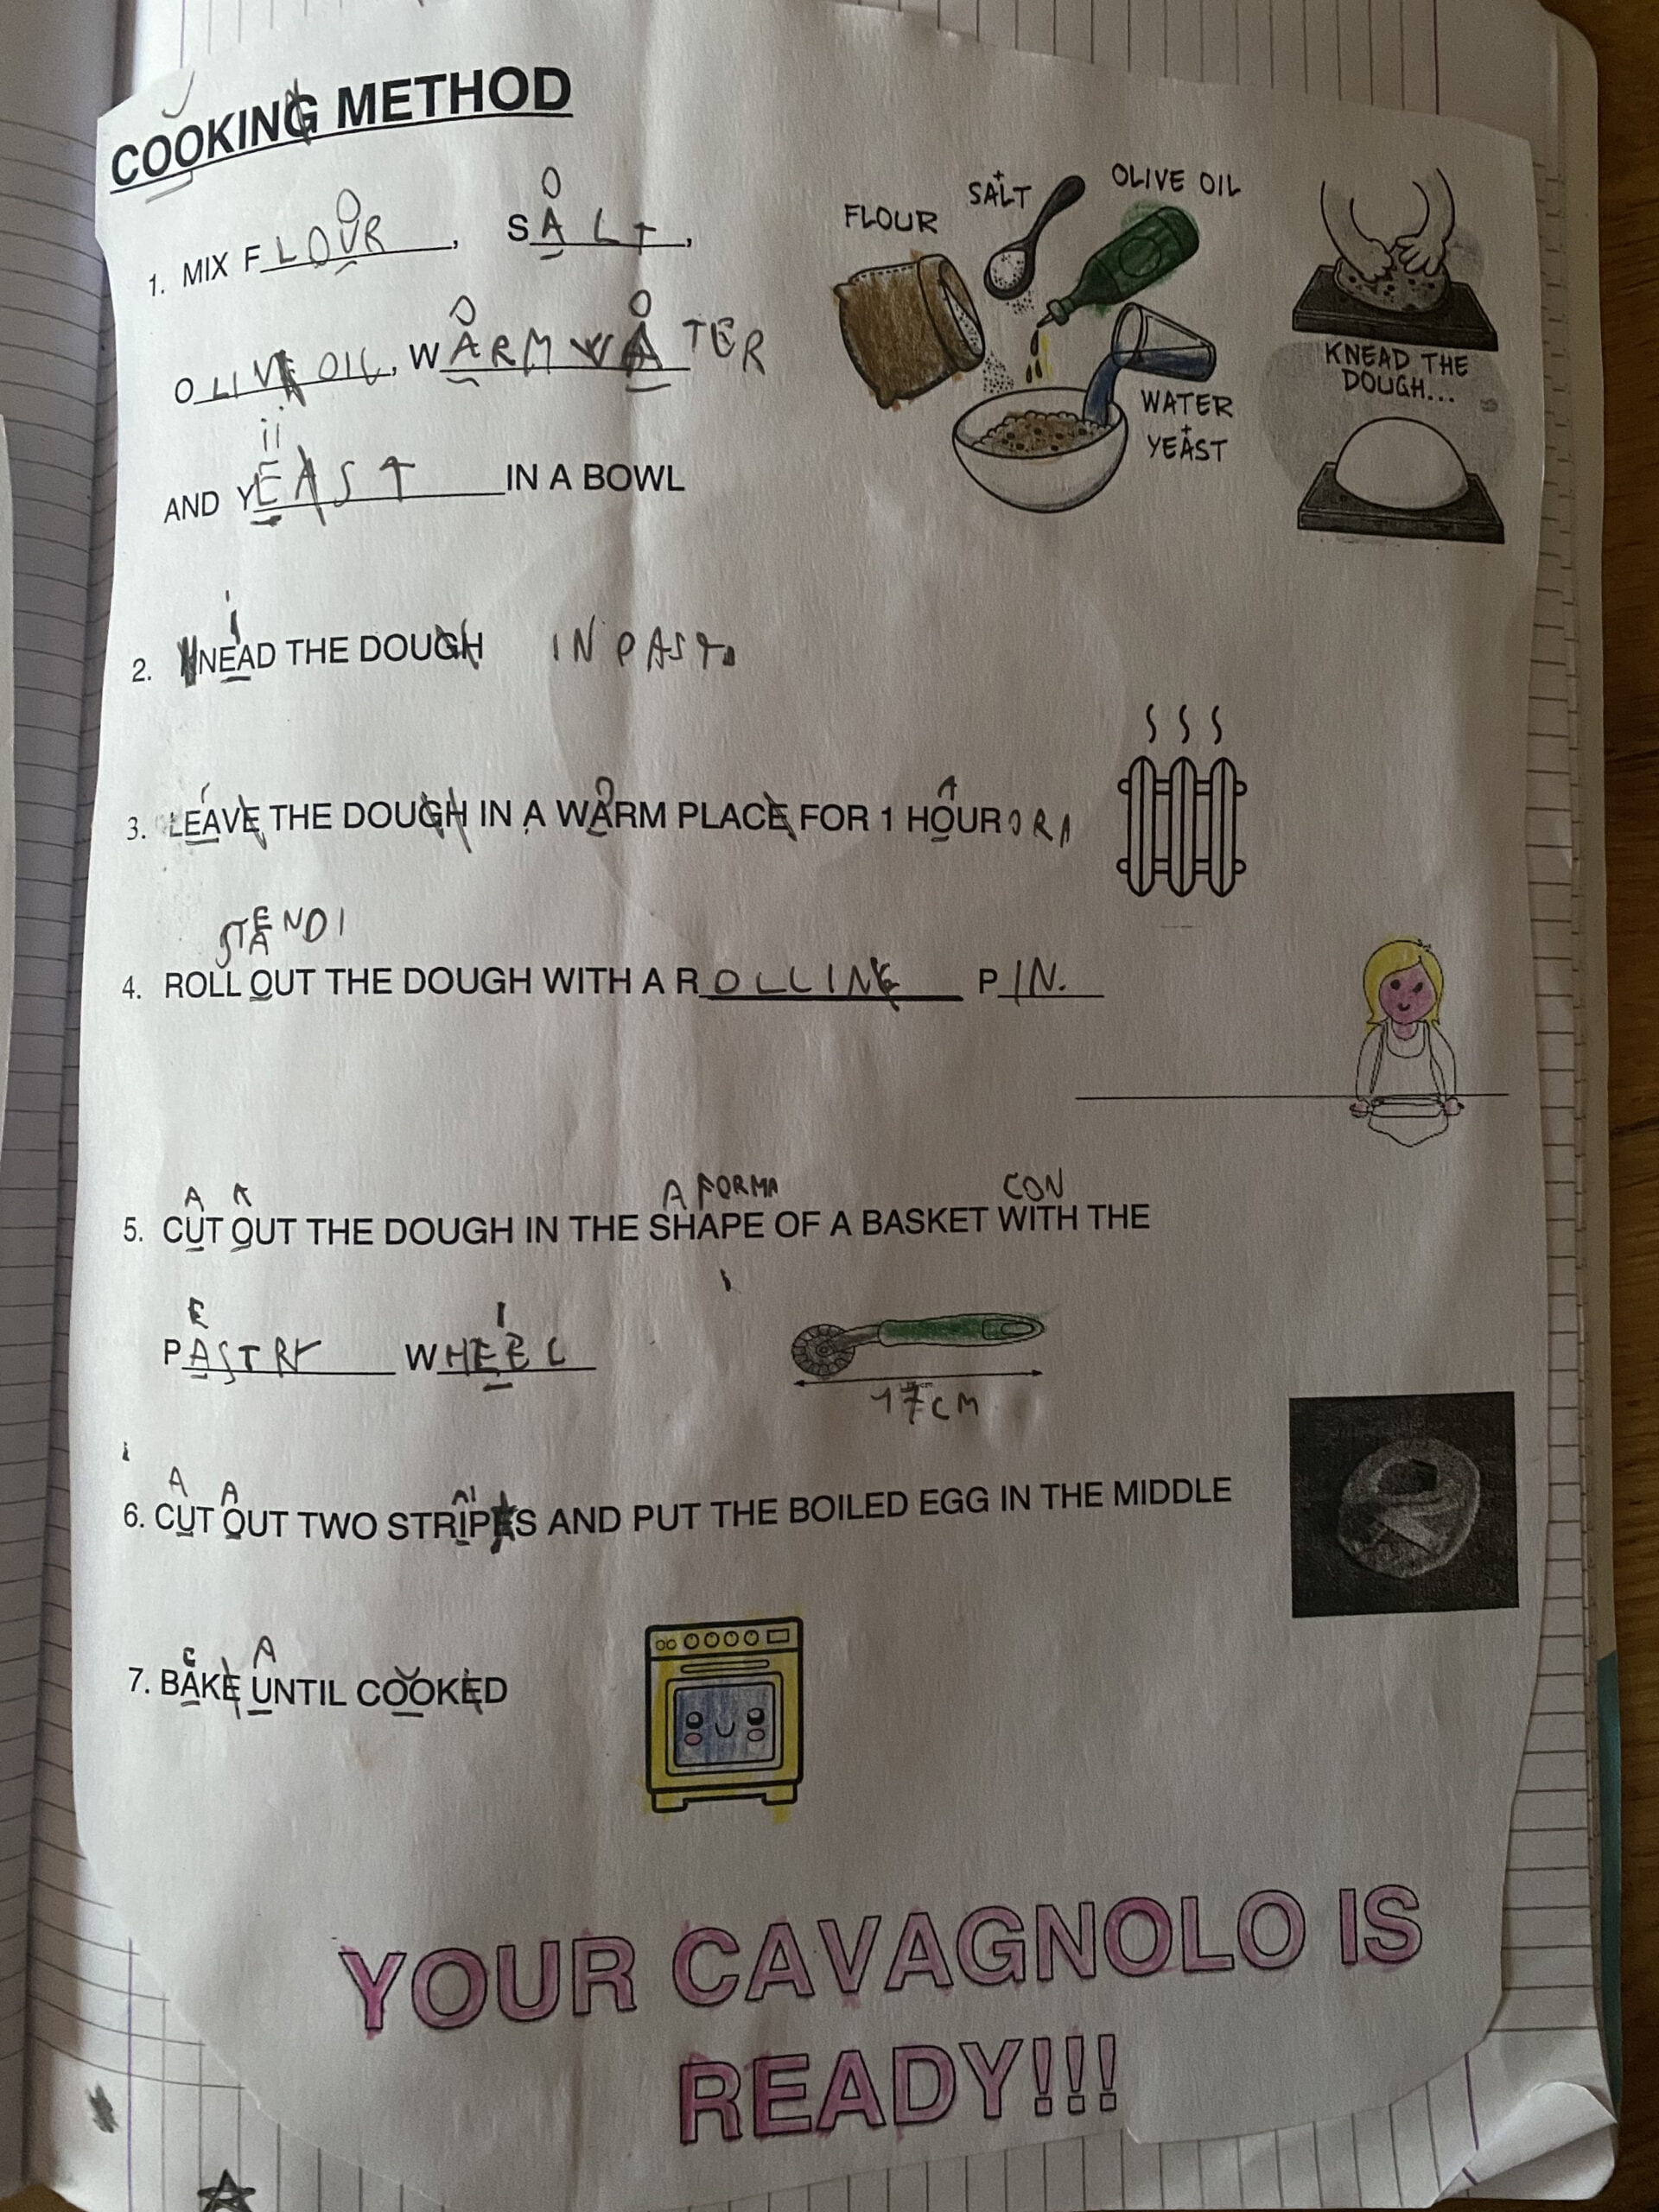 COOKING METHOD
O O
1. MIX FLOUR, SALT,
O O
OLIVE OIL, WARM WATER
ii
AND YEAST IN A BOWL
FLOUR
SALT
OLIVE OIL
WATER
+
YEAST
KNEAD THE
DOUGH...
i
2. KNEAD THE DOUGH IN PASTA
3. LEAVE THE DOUGH IN A WARM PLACE FOR 1 HOUR ORA
STENDI
A
4. ROLL OUT THE DOUGH WITH A ROLLING PIN.
A A A FORMA CON
5. CUT OUT THE DOUGH IN THE SHAPE OF A BASKET WITH THE
E I
PASTRY WHEEL
17 CM
A A AI
6. CUT OUT TWO STRIPES AND PUT THE BOILED EGG IN THE MIDDLE
E A
7. BAKE UNTIL COOKED
YOUR CAVAGNOLO IS
READY!!!